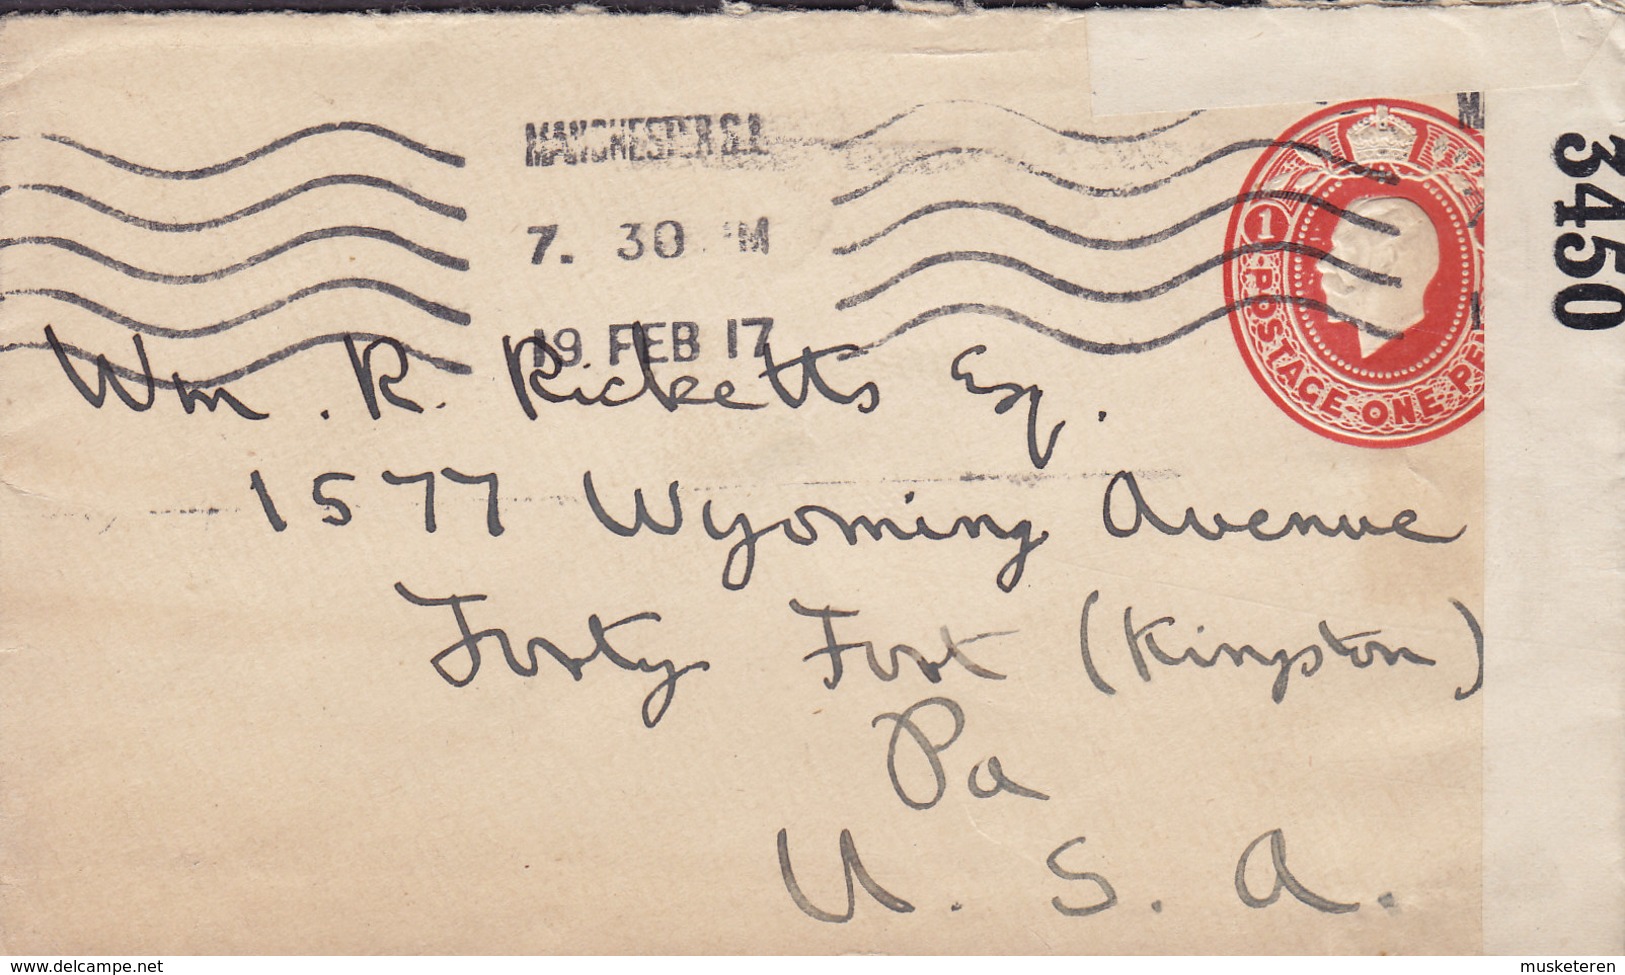 MANCHESTER S.
7. 30 M
19 FEB 17
1
POSTAGE ONE PE
3450
Wm. R. Ricketts Esq.
1577 Wyoming Avenue
Forty Fort (Kingston)
Pa
U. S. A.
www.delcampe.net
musketeren